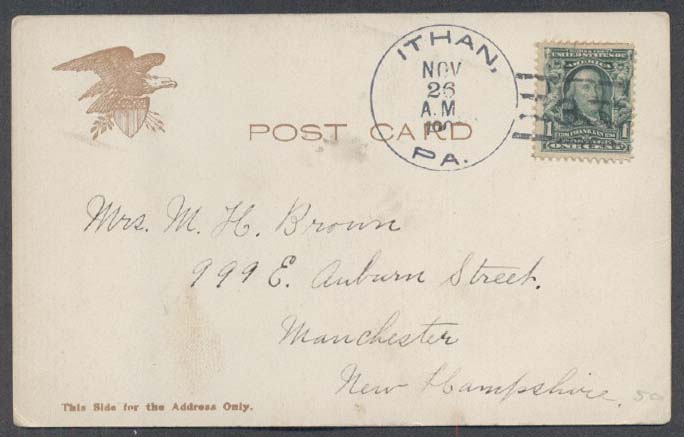 ITHAN,
NOV
26
A.M.
PA.
UNITED STATES OF
AMERICA
1 FRANKLIN 1
ONE CENT
POST CARD
Mrs. M. H. Brown
999 E. Auburn Street.
Manchester
New Hampshire.
This Side for the Address Only.
50